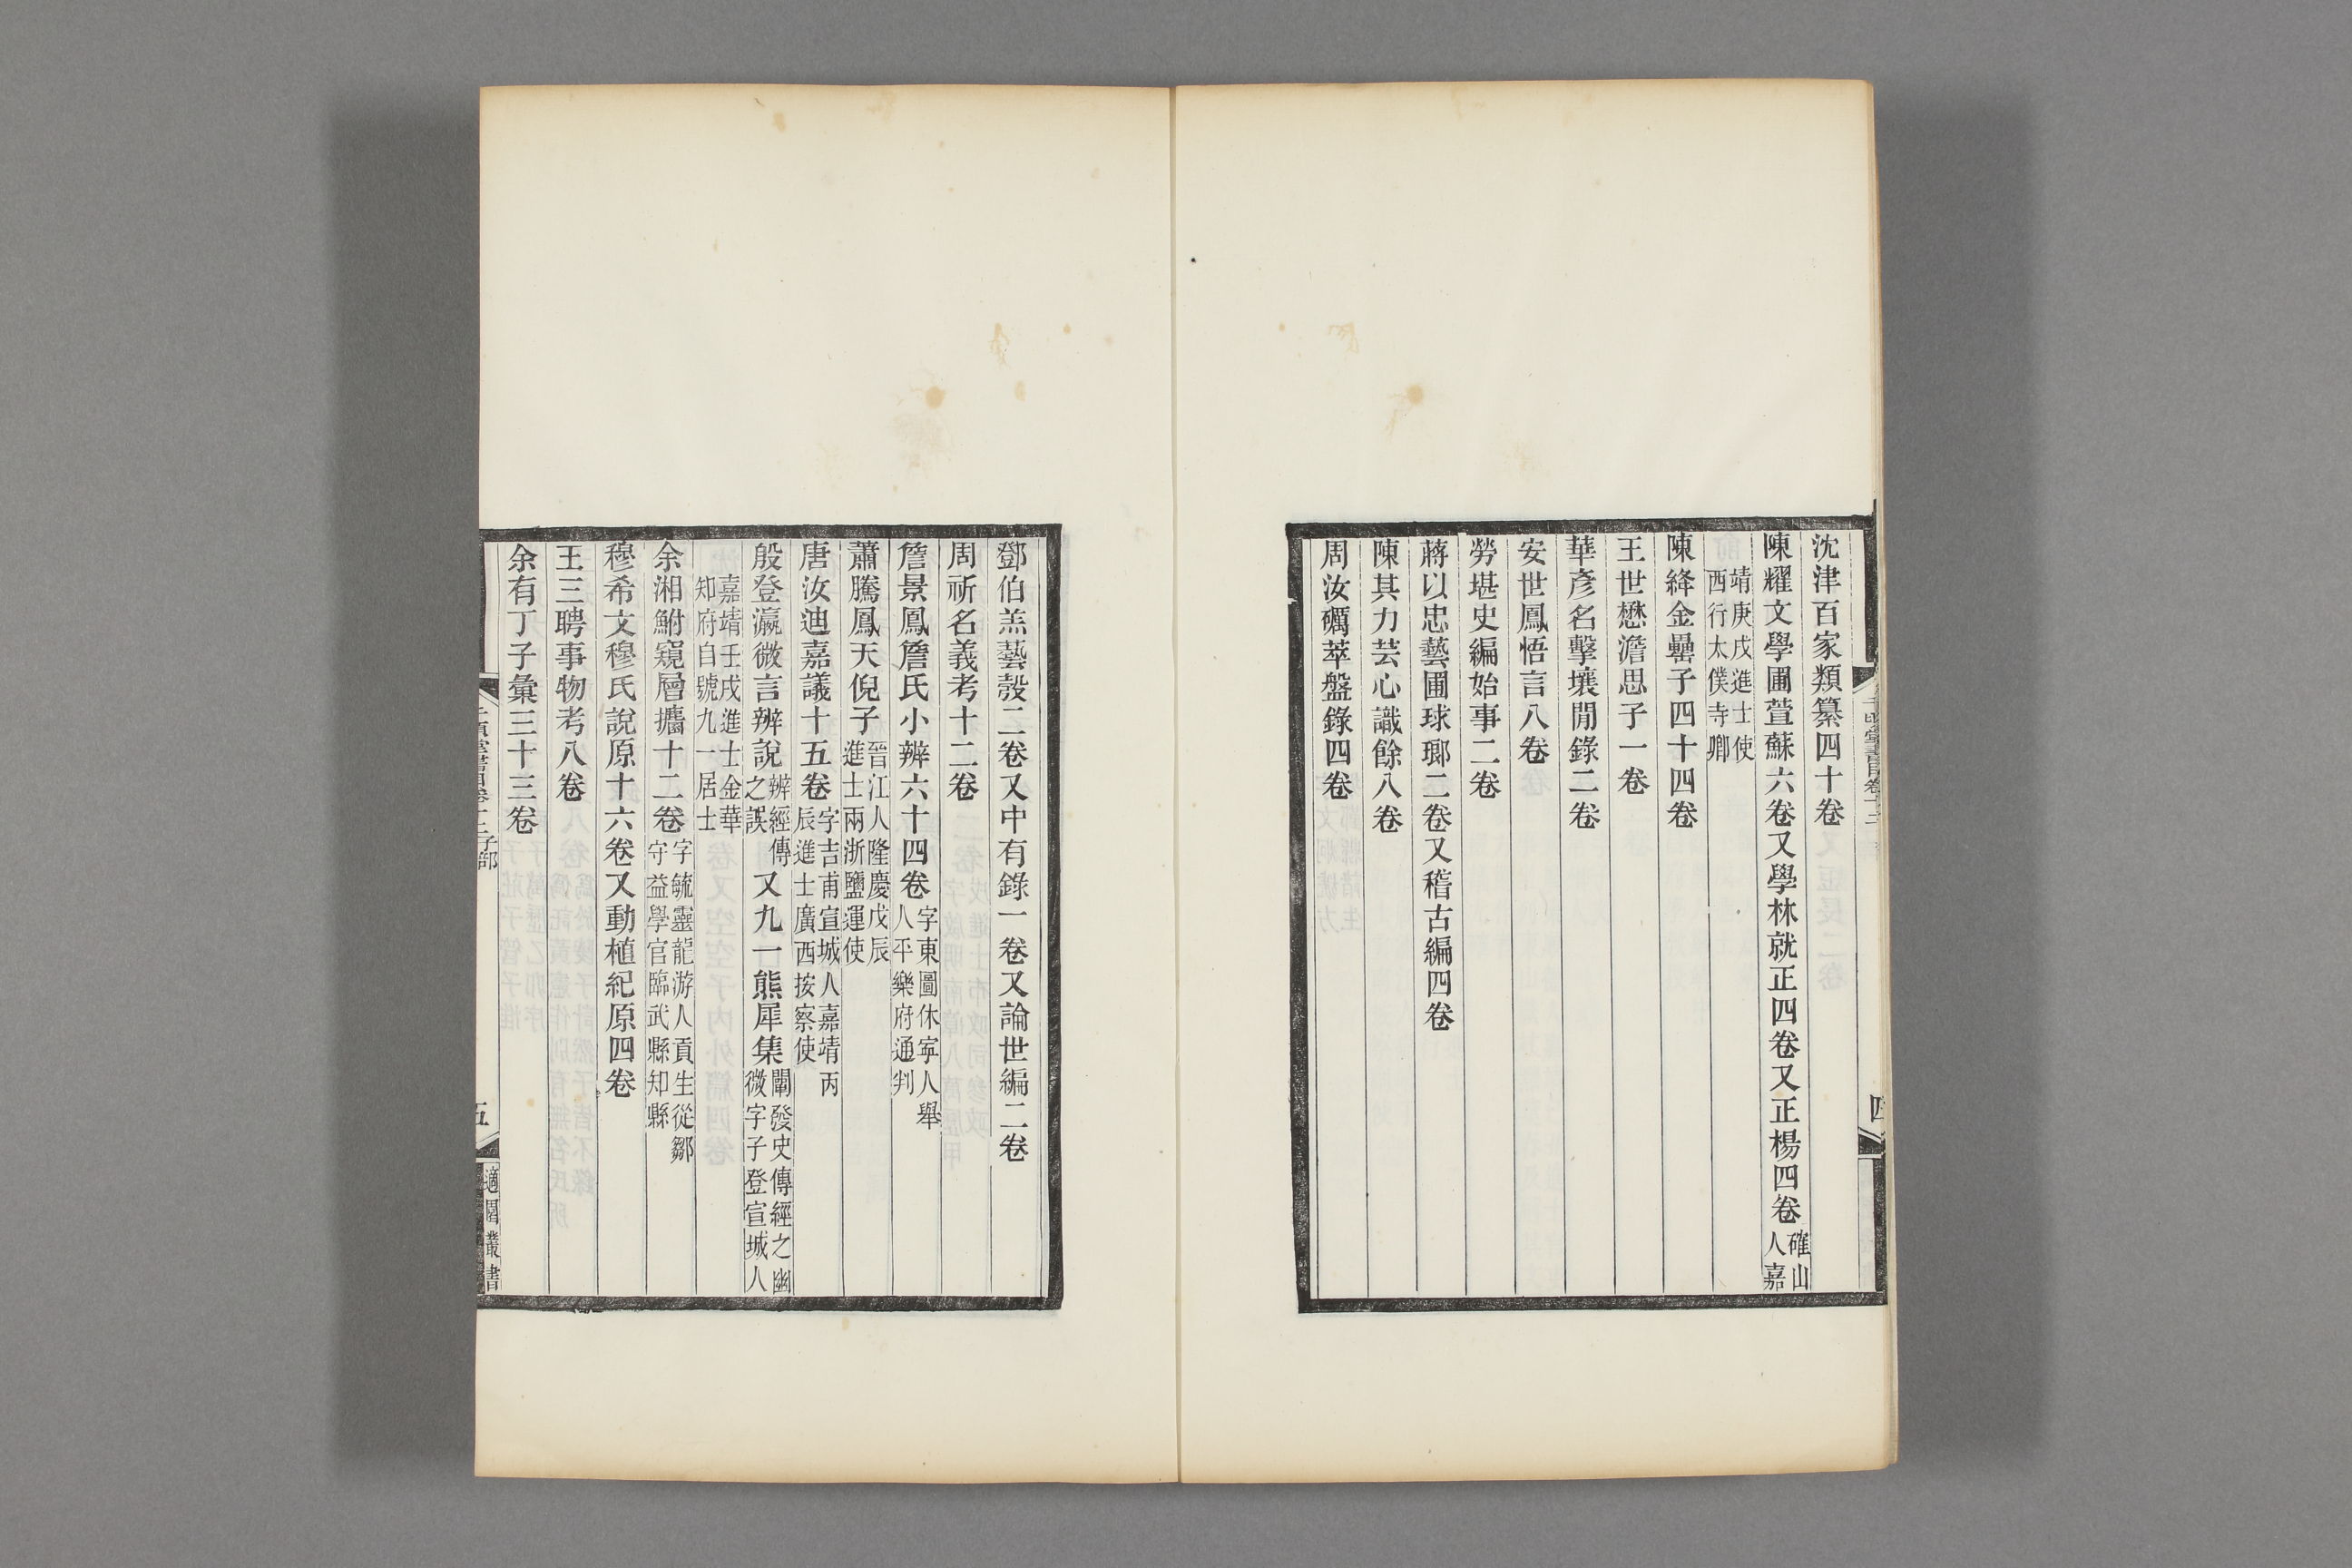 沈津百家類纂四十卷
陳耀文學圃萱蘇六卷又學林就正四卷又正楊四卷確山人嘉
靖庚戌進士使
西行太僕寺卿
陳絳金罍子四十四卷
王世懋澹思子一卷
華彥名擊壤閒錄二卷
安世鳳悟言八卷
勞堪史編始事二卷
蔣以忠藝圃球瑯二卷又稽古編四卷
陳其力芸心識餘八卷
周汝礪萃盤錄四卷
鄧伯羔藝彀二卷又中有錄一卷又論世編二卷
周祈名義考十二卷
詹景鳳詹氏小辨六十四卷字東圖休寧人舉人平樂府通判
蕭騰鳳天倪子晉江人隆慶戊辰進士兩浙鹽運使
唐汝迪嘉議十五卷字吉甫宣城人嘉靖丙辰進士廣西按察使
殷登瀛微言辨說辨經傳之誤又九一熊犀集闡發史傳經之幽微字子登宣城人
嘉靖壬戌進士金華
知府自號九一居士
余湘鮒窺層攟十二卷字毓靈龍游人貢生從鄒守益學官臨武縣知縣
穆希文穆氏說原十六卷又動植紀原四卷
王三聘事物考八卷
余有丁子彙三十三卷
千頃堂書目卷十二子部
五
適園叢書